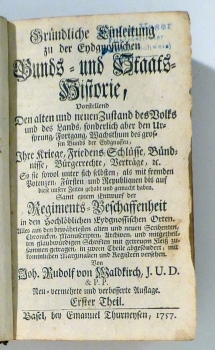 Gründliche Einleitung
zu der Eydgnoßischen
Bunds- und Staats-
Historie,
Vorstellend
Den alten und neuen Zustand des Volks
und des Lands, sonderlich aber den Ur-
sprung, Fortgang, Wachsthum des gros-
sen Bunds der Eydgnossen;
Ihre Kriege, Friedens-Schlüsse, Bünd-
nüsse, Bürgerrechte, Verträge, ꝛc.
So sie sowol unter sich selbsten, als mit fremden
Potenzen, Fürsten und Republiquen bis auf
diese unsere Zeiten gehabt und gemacht haben.
Samt einem Entwurf der
Regiments-Beschaffenheit
in den Hochlöblichen Eydgnoßischen Orten.
Alles aus den bewährtesten alten und neuen Scribenten,
Chronicken, Manuscripten, Archiven, und mitgetheil-
ten glaubwürdigen Schriften mit getreuem Fleiß zu-
sammen getragen, in zweyen Theile abgesondert, mit
Marginalien und Registern versehen.
Von
Joh. Rudolf von Waldkirch, J. U. D.
& P. P.
Neu-vermehrte und verbesserte Auflage.
Erster Theil.
Basel, bey Emanuel Thurneysen, 1757.